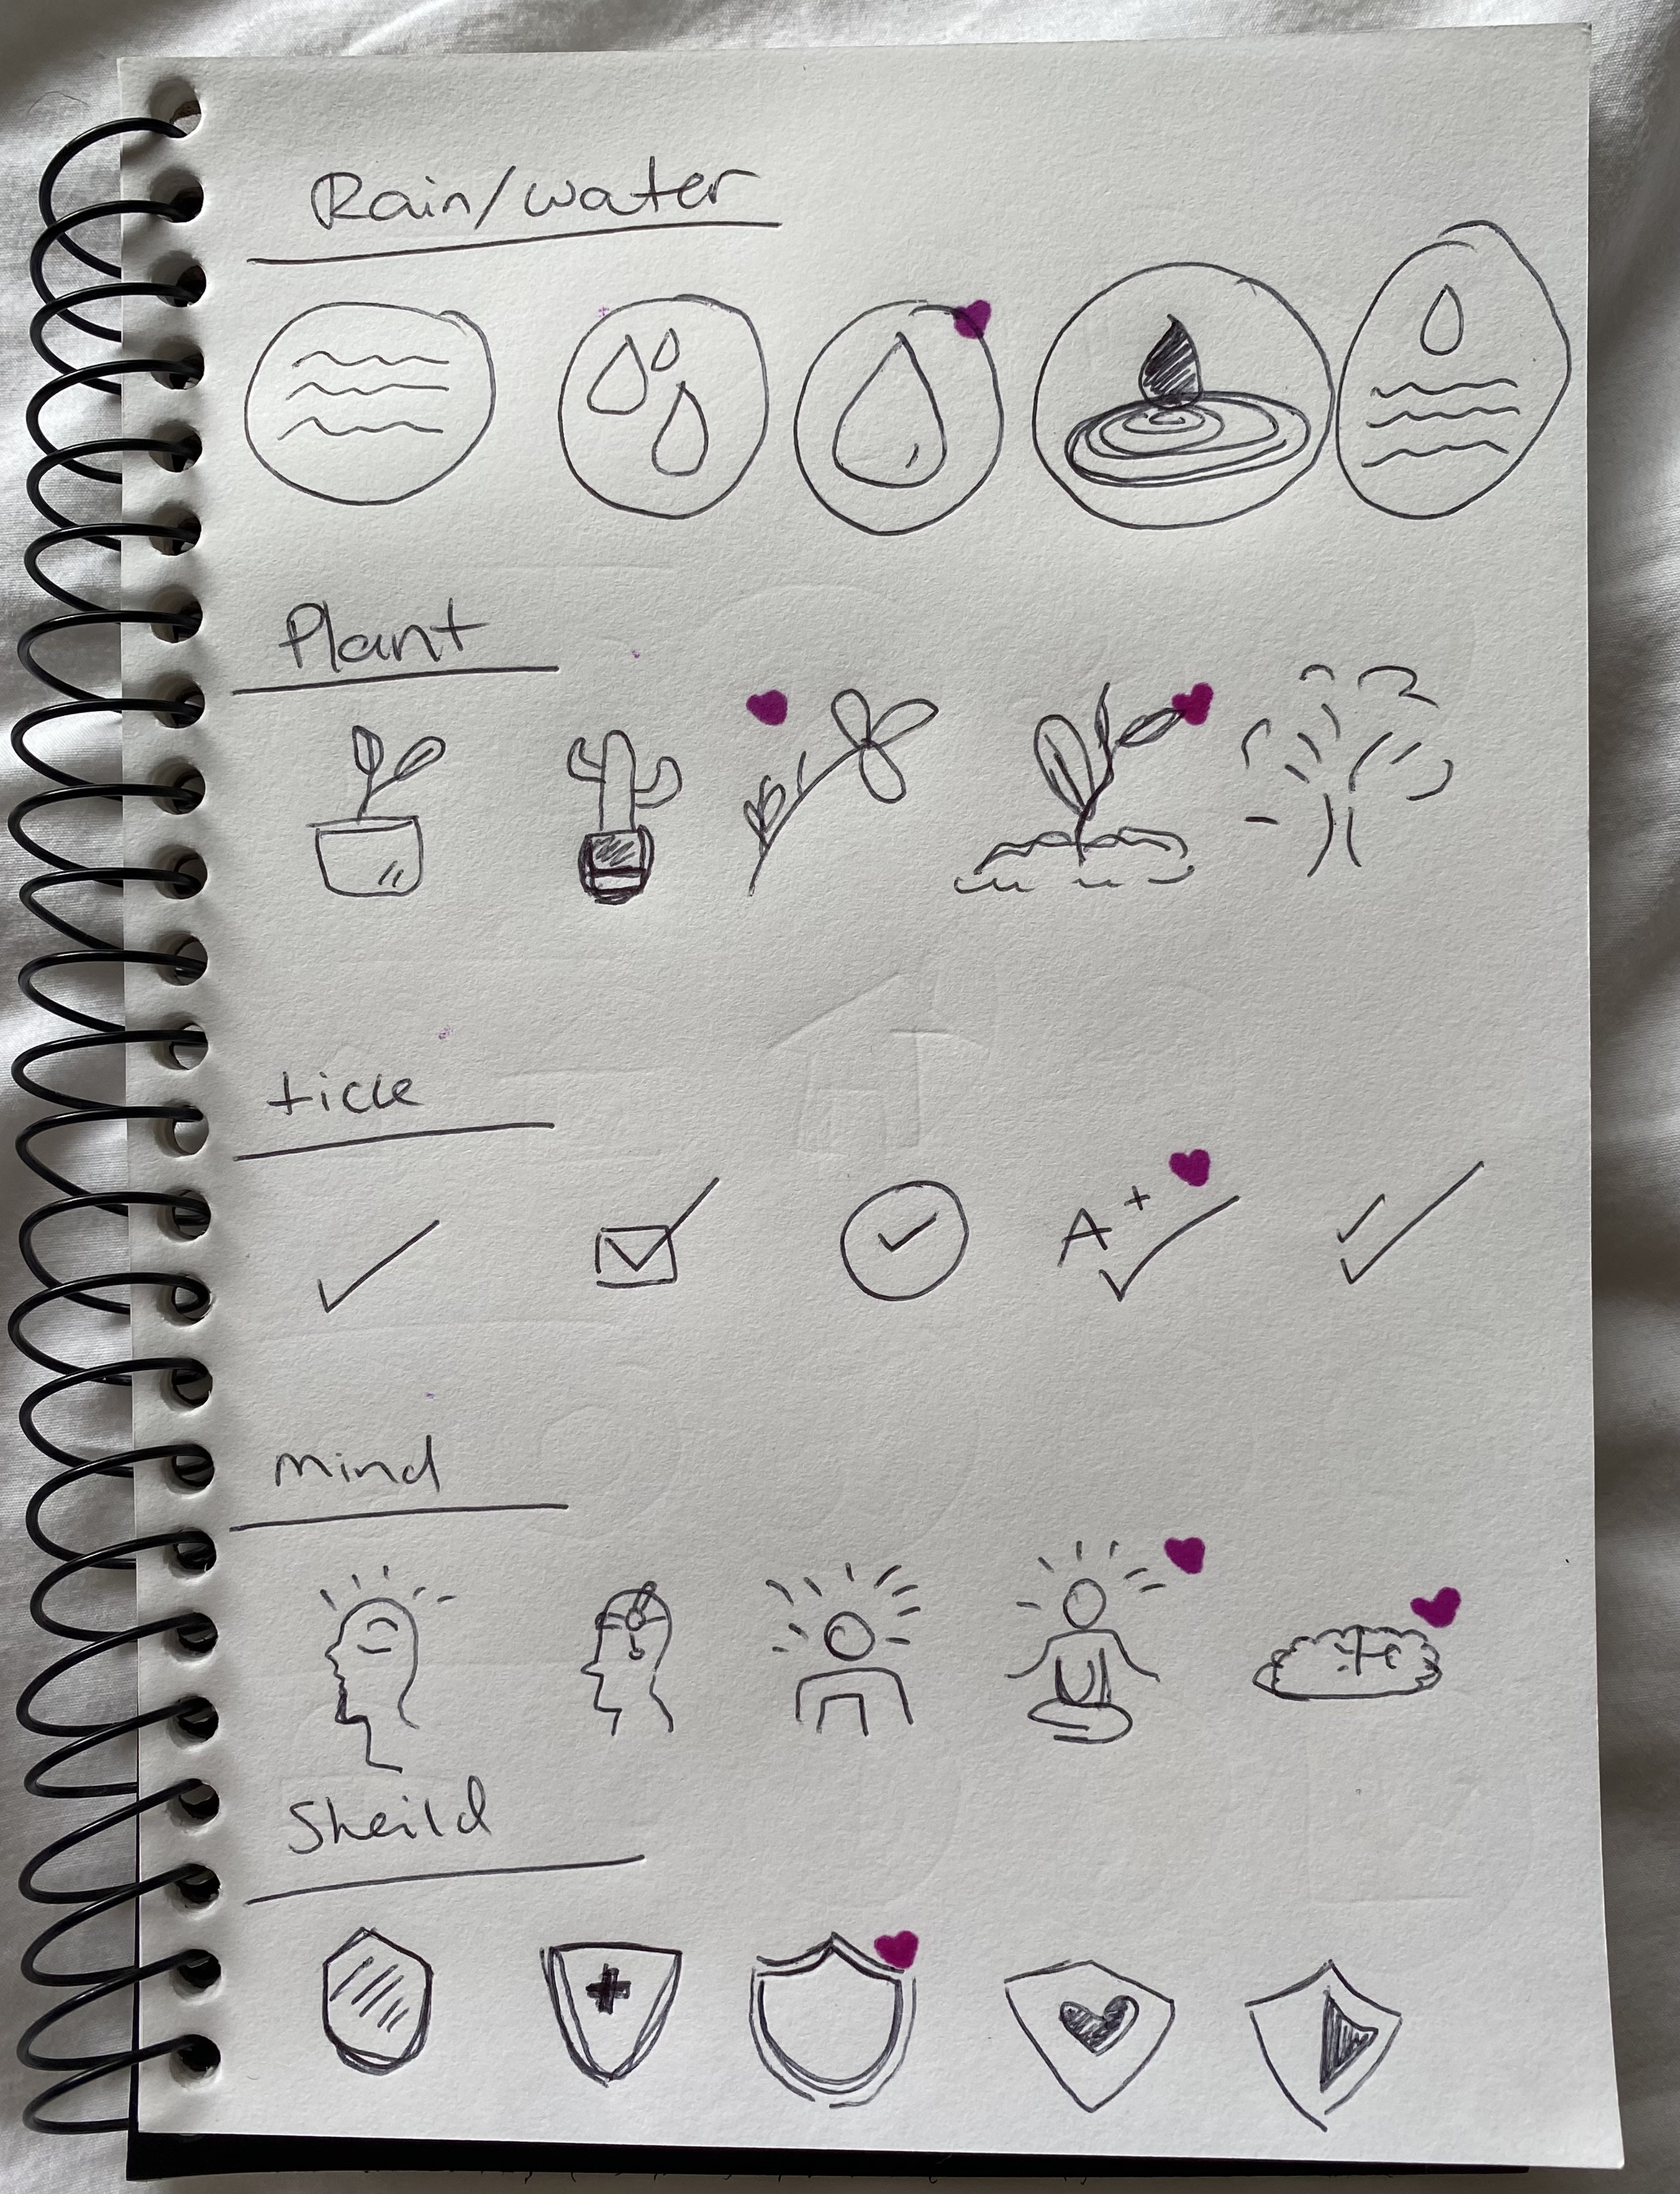 Rain/water
Plant
tick
A+
mind
Sheild